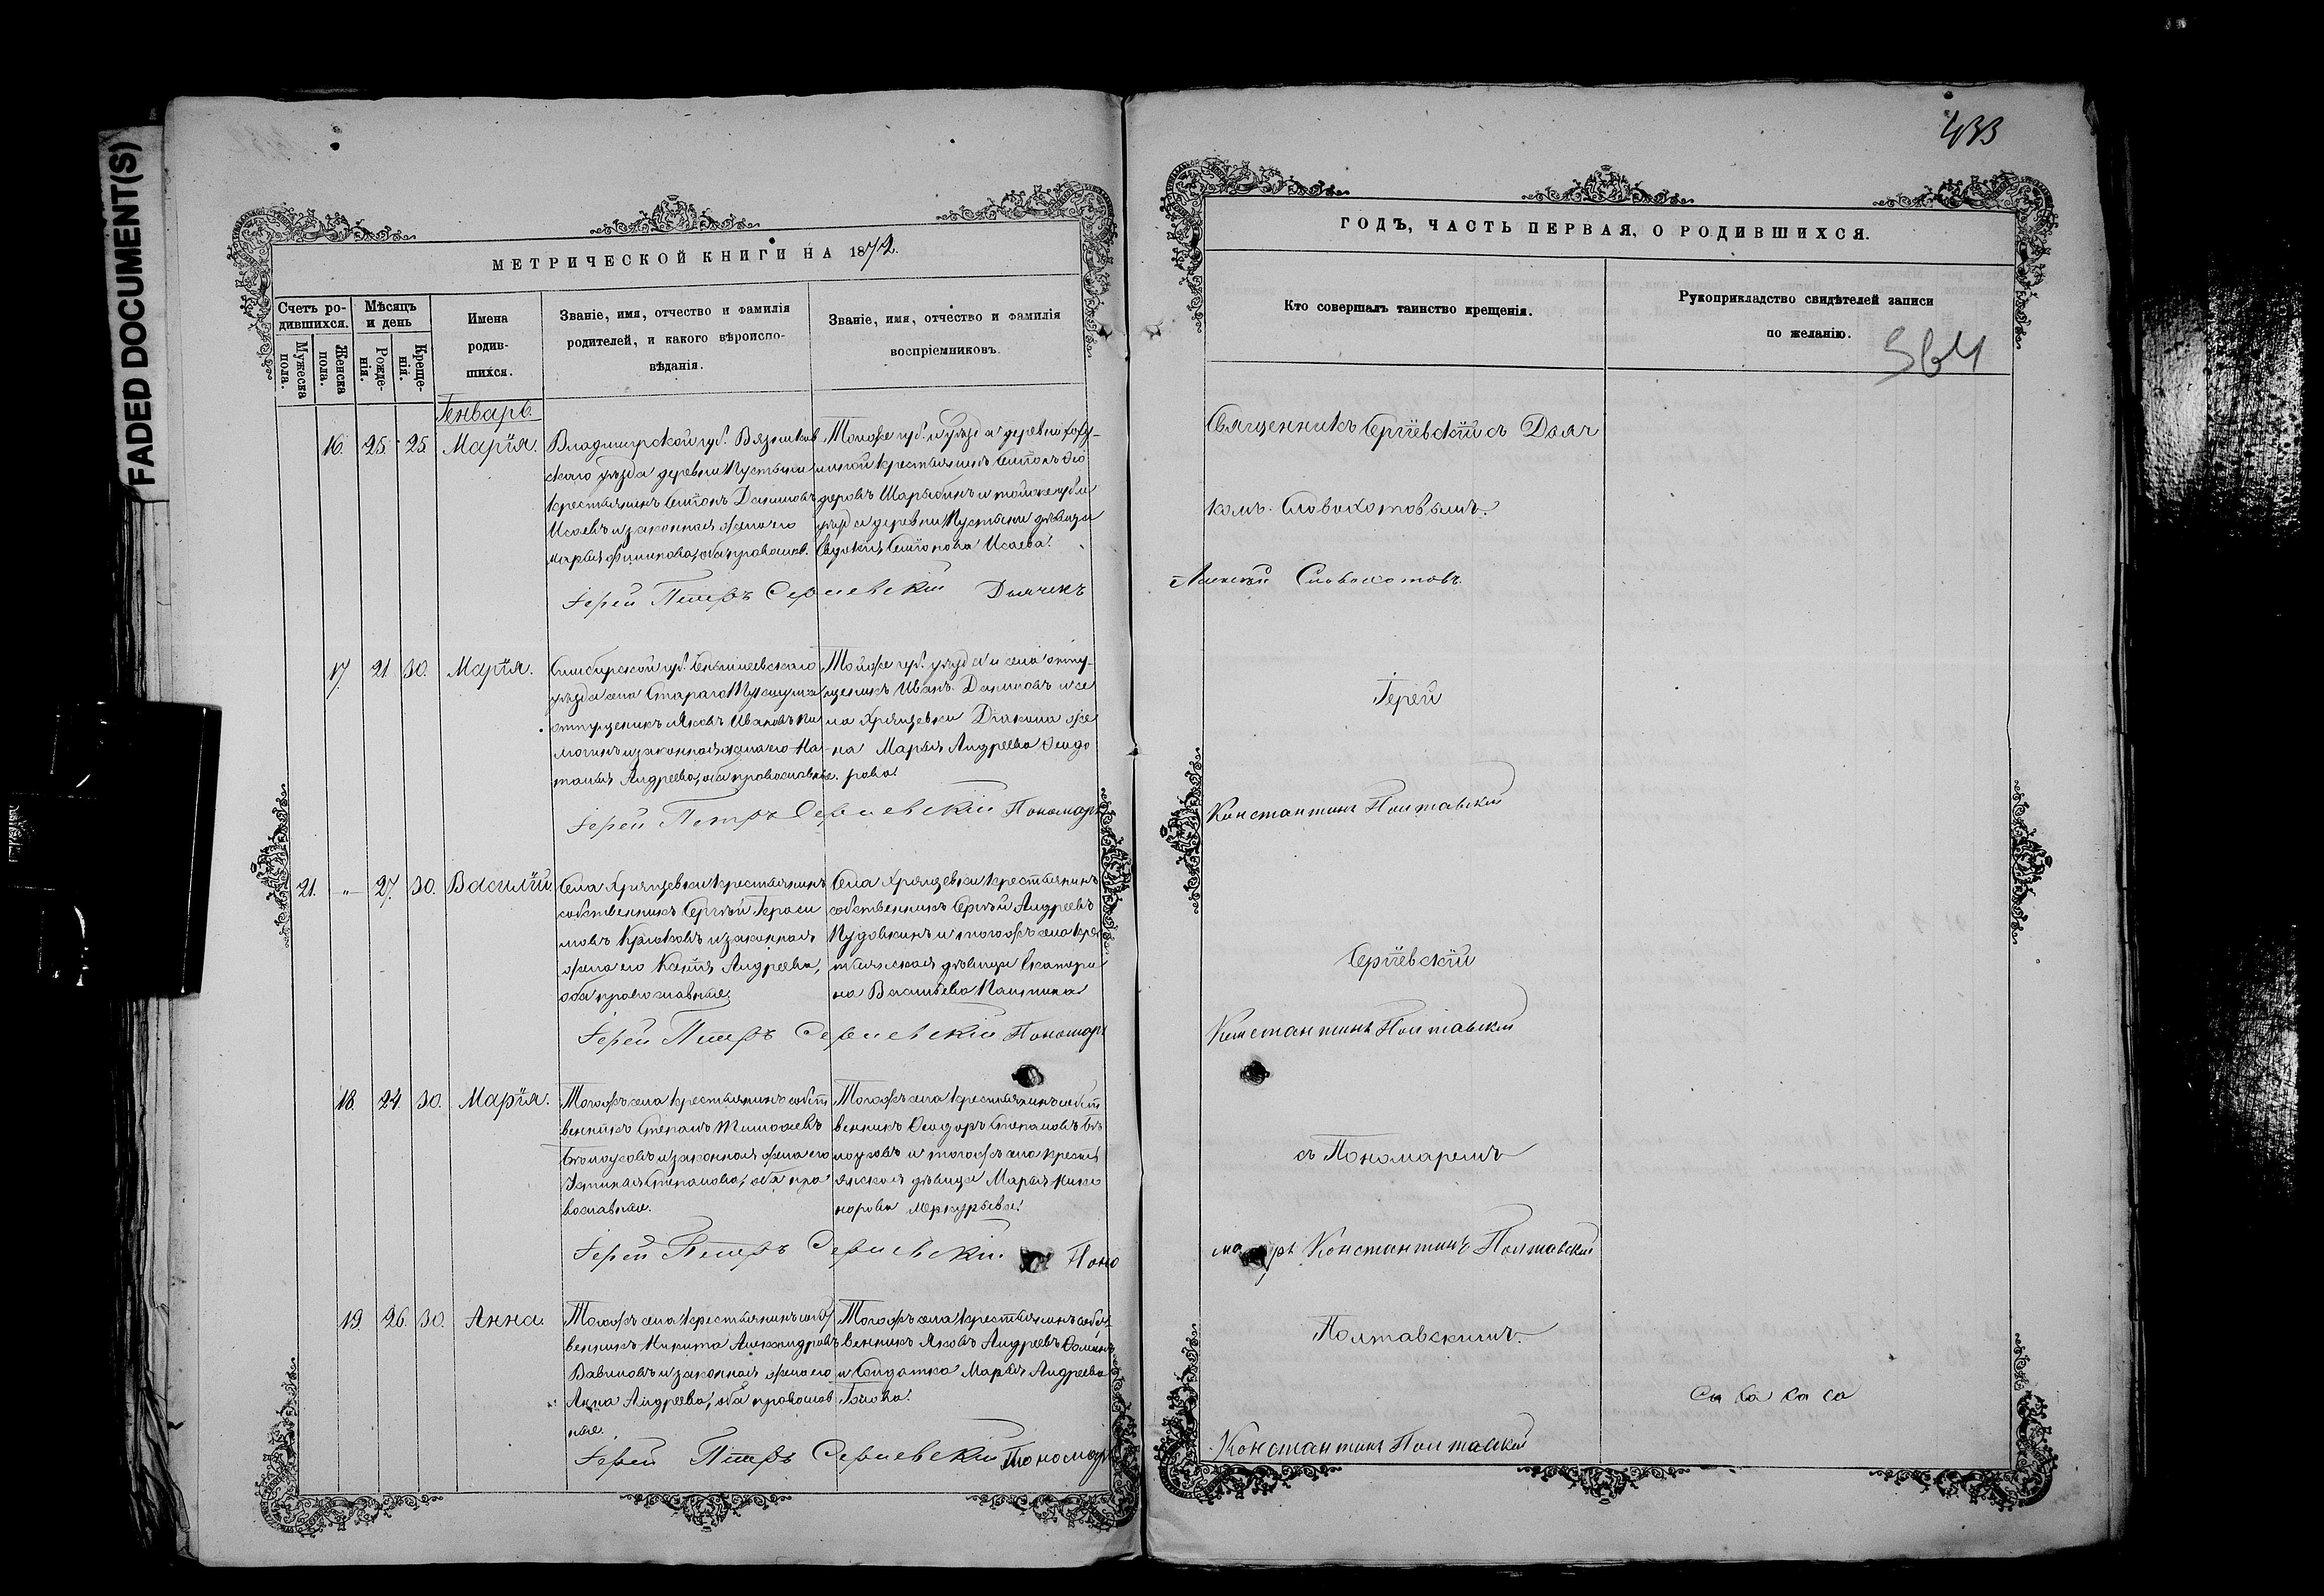 FADED DOCUMENT(S)
МЕТРИЧЕСКОЙ КНИГИ НА 1872.
Счетъ родившихся.
Мужеска пола.
Женска пола.
Мѣсяцъ и день
Рожденія.
Крещенія.
Имена родившихся.
Званіе, имя, отчество и фамилія
родителей, и какого вѣроиспо-
вѣданія.
Званіе, имя, отчество и фамилія
воспріемниковъ.
Генварь.
16. 25. 25. Марія.
Владимірской губ. Вязников
скаго уѣзда деревни Пустыни
крестьянинъ Семіонъ Даниловъ
Исаевъ и законная жена его
Марья Филипова, оба православ.
Той же губ. и уѣзда деревни
крестьянинъ Семіонъ Ѳео
доровъ и той же губ. и
уѣзда деревни Пустыни дѣвица
Евдокія Семіонова Исаева.
Іерей Петръ Сергіевскій Дьячекъ
17. 21. 30. Марія.
Симбирской губ. Сенгилеевскаго
уѣзда села Стараго
отпущеникъ Яковъ Ивановъ
и законная жена его На-
талья Андреева, оба православные.
Той же губ. уѣзда и села отпу-
щеникъ Иванъ Даниловъ и се
ла Хрящевки Діакона же
на Марья Андреева Ѳеодо
рова.
Іерей Петръ Сергіевскій Пономарь
21. „ 27. 30. Василій.
Села Хрящевки крестьянинъ
собственникъ Сергѣй Гераси
мовъ Крюковъ и законная
жена его Ксенія Андреева,
оба православные.
Села Хрящевки крестьянинъ
собственникъ Сергѣй Андреевъ
Пудовкинъ и того жъ села крес
тьянская дѣвица Екатери
на Васильева
Іерей Петръ Сергіевскій Пономарь
18. 24. 30. Марія.
Того жъ села крестьянинъ собст
венникъ Степанъ Тимофеевъ
Бѣлоусовъ и законная жена его
Устинья Степанова, оба пра
вославные.
Того жъ села крестьянинъ собст
венникъ Ѳеодоръ Степановъ Бѣ
лоусовъ и того жъ села кресть
янская дѣвица Марья Ника
норова Меркурьева.
Іерей Петръ Сергіевскій Поно
19. 26. 30. Анна.
Того жъ села крестьянинъ собст
венникъ Никита Александровъ
Вавиловъ и законная жена его
Анна Андреева, оба православ
ные.
Того жъ села крестьянинъ собст
венникъ Яковъ Андреевъ Ѳоминъ
и Солдатка Марья Андреева
Іерей Петръ Сергіевскій Пономарь
433
ГОДЪ, ЧАСТЬ ПЕРВАЯ, О РОДИВШИХСЯ.
Кто совершалъ таинство крещенія.
Рукоприкладство свидѣтелей записи
по желанію.
564
Священникъ Сергіевскій съ Дьяч
комъ Словохотовымъ.
Алексѣй Словохотовъ
Іерей
Константинъ Полтавскій
Сергіевскій
Константинъ Полтавскій
съ Пономаремъ
марь Константинъ Полтавскій
Полтавскимъ.
Константинъ Полтавскій